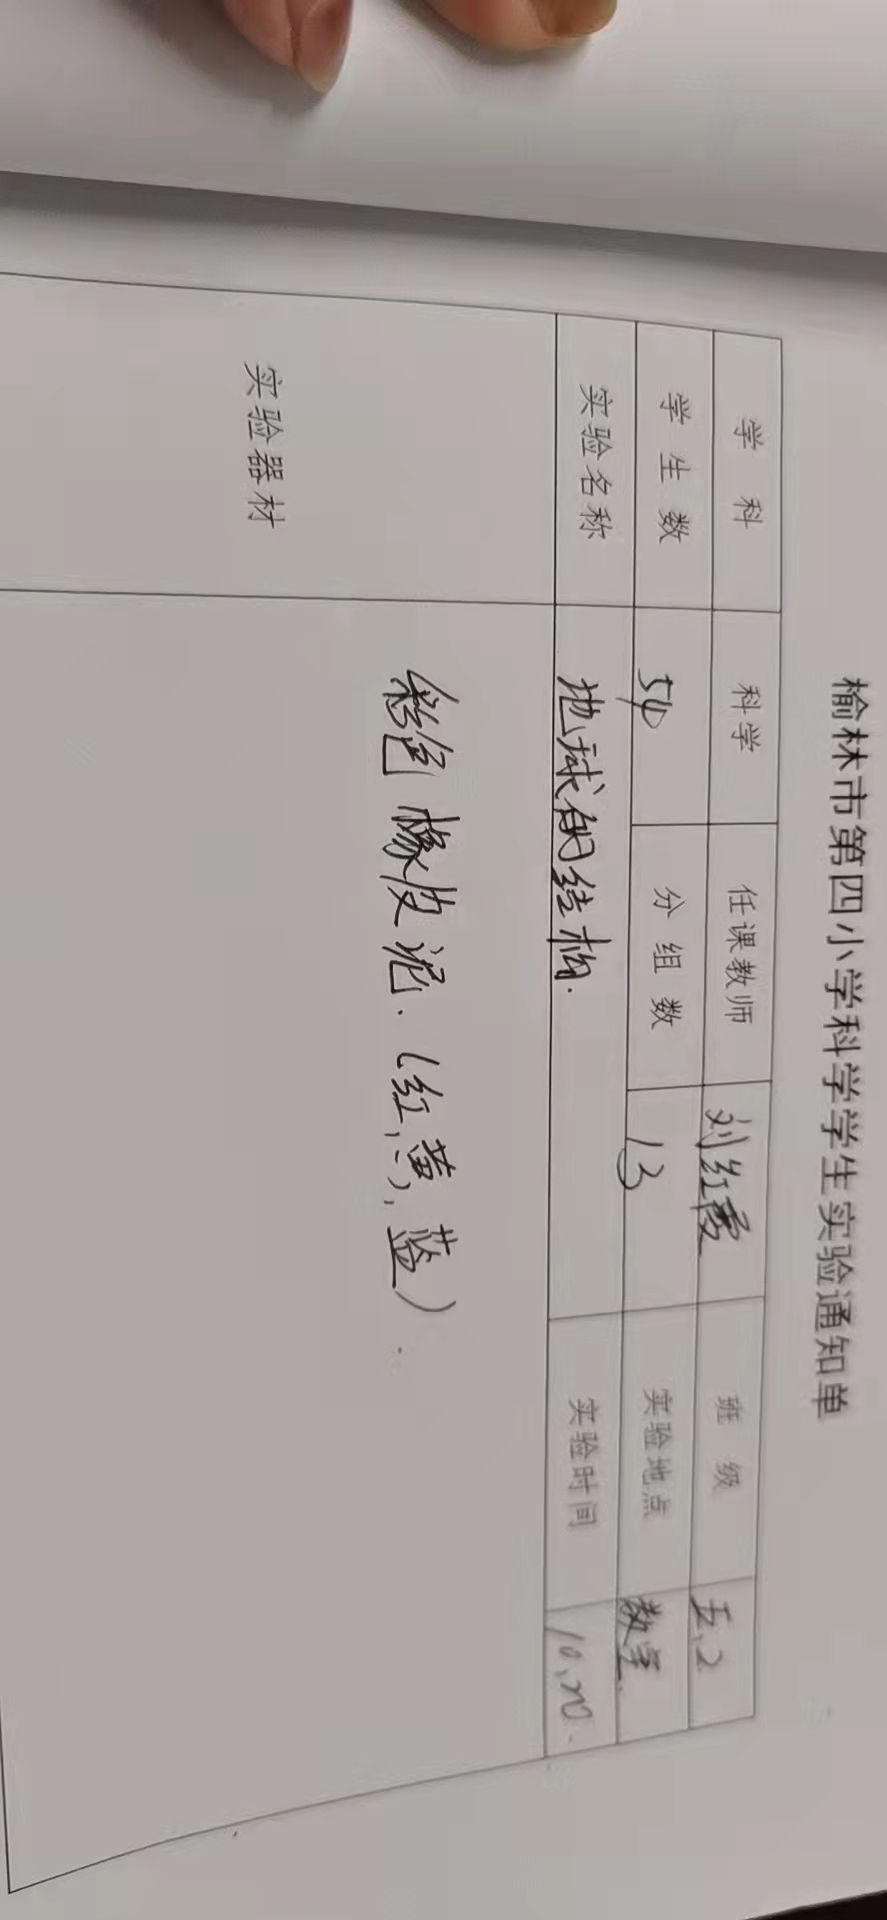 榆林市第四小学科学学生实验通知单
学 科 科学 任课教师 刘红霞 班 级 五.2
学 生 数 54 分 组 数 13 实验地点 教室.
实验名称 地球的结构. 实验时间 10.20.
实验器材 彩色橡皮泥.(红,黄,蓝).